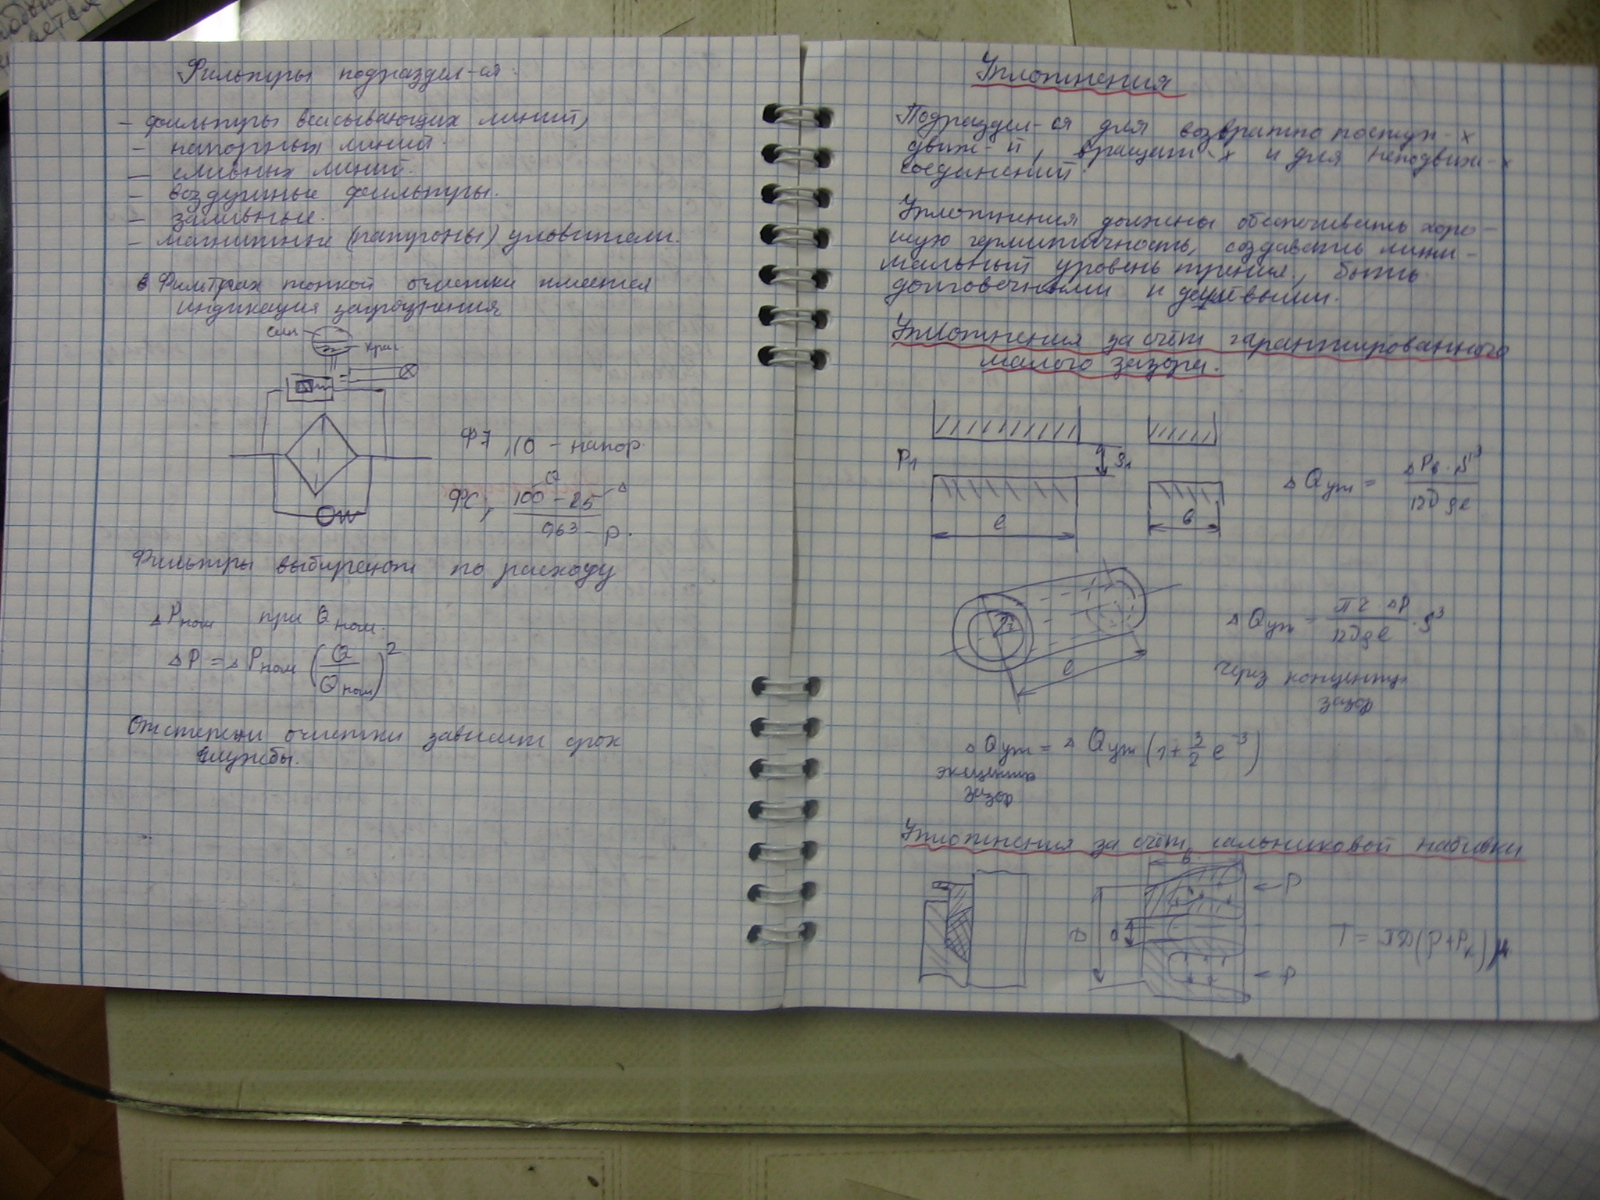 Фильтры подраздел-ся:
– фильтры всасывающих линий,
– напорных линий.
– сливных линий.
– воздушные фильтры.
– заливные.
– магнитные (патроны) уловители.
в Фильтрах тонкой очистки имеется
индикация загрязнения
син
крас
Ф7, 10 – напор.
Q
ФС, 100 – 25 – Δ
0,63 – p.
Фильтры выбирают по расходу
ΔPном при Qном.
ΔP = ΔPном (Q/Qном)²
От степени очистки зависит срок
службы.
Уплотнения
Подраздел-ся для возвратно поступ-х
движ-й, вращат-х и для неподвиж-х
соединений.
Уплотнения должны обеспечивать хоро-
шую герметичность, создавать мини-
мальный уровень трения, быть
долговечными и дешёвыми.
Уплотнения за счёт гарантированного
малого зазора.
P1
S1
ℓ
в
ℓ
через концентр.
зазор
ΔQут = ΔQут (1 + 3/2 e³)
эксцентр
зазор
Уплотнения за счёт сальниковой набивки
в
P
D
d
P